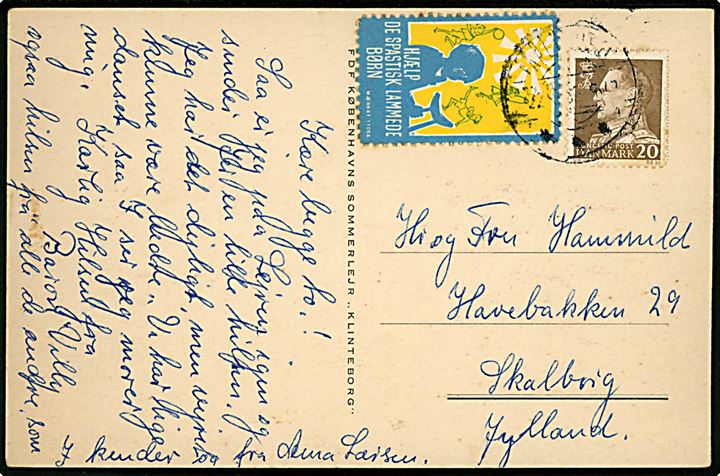 Kære begge to!
Saa er jeg paa Lejren igen og
sender Jer en lille hilsen.
Jeg har det dejligt, men vejret
kunne være bedre. Vi har lige
danset saa I ser jeg morer
mig. Kærlig Hilsen fra
Villy
ogsaa hilsen fra alle de andre, som
I kender fra Anna Larsen.
FDF KØBENHAVNS SOMMERLEJR „KLINTEBORG"
HJÆLP
DE SPASTISK LAMMEDE
BØRN
DANMARK 20
Hr og Fru Hammild
Havebakken 29
Skalborg
Jylland.